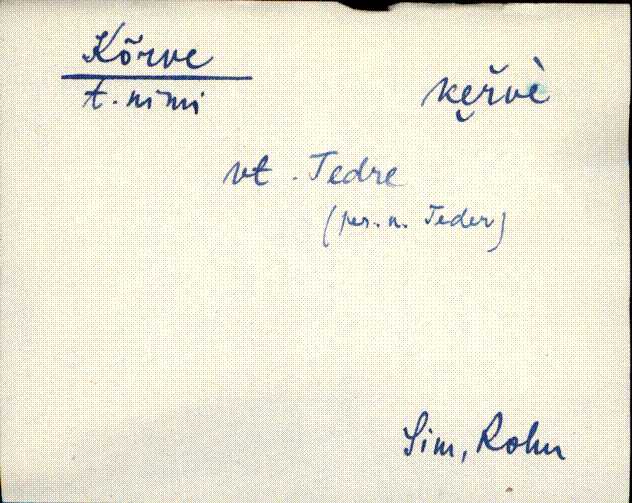 Kõrve
t. nimi
kẹr̆vè
vt. Tedre
(per. n. Teder)
Sim, Rohu